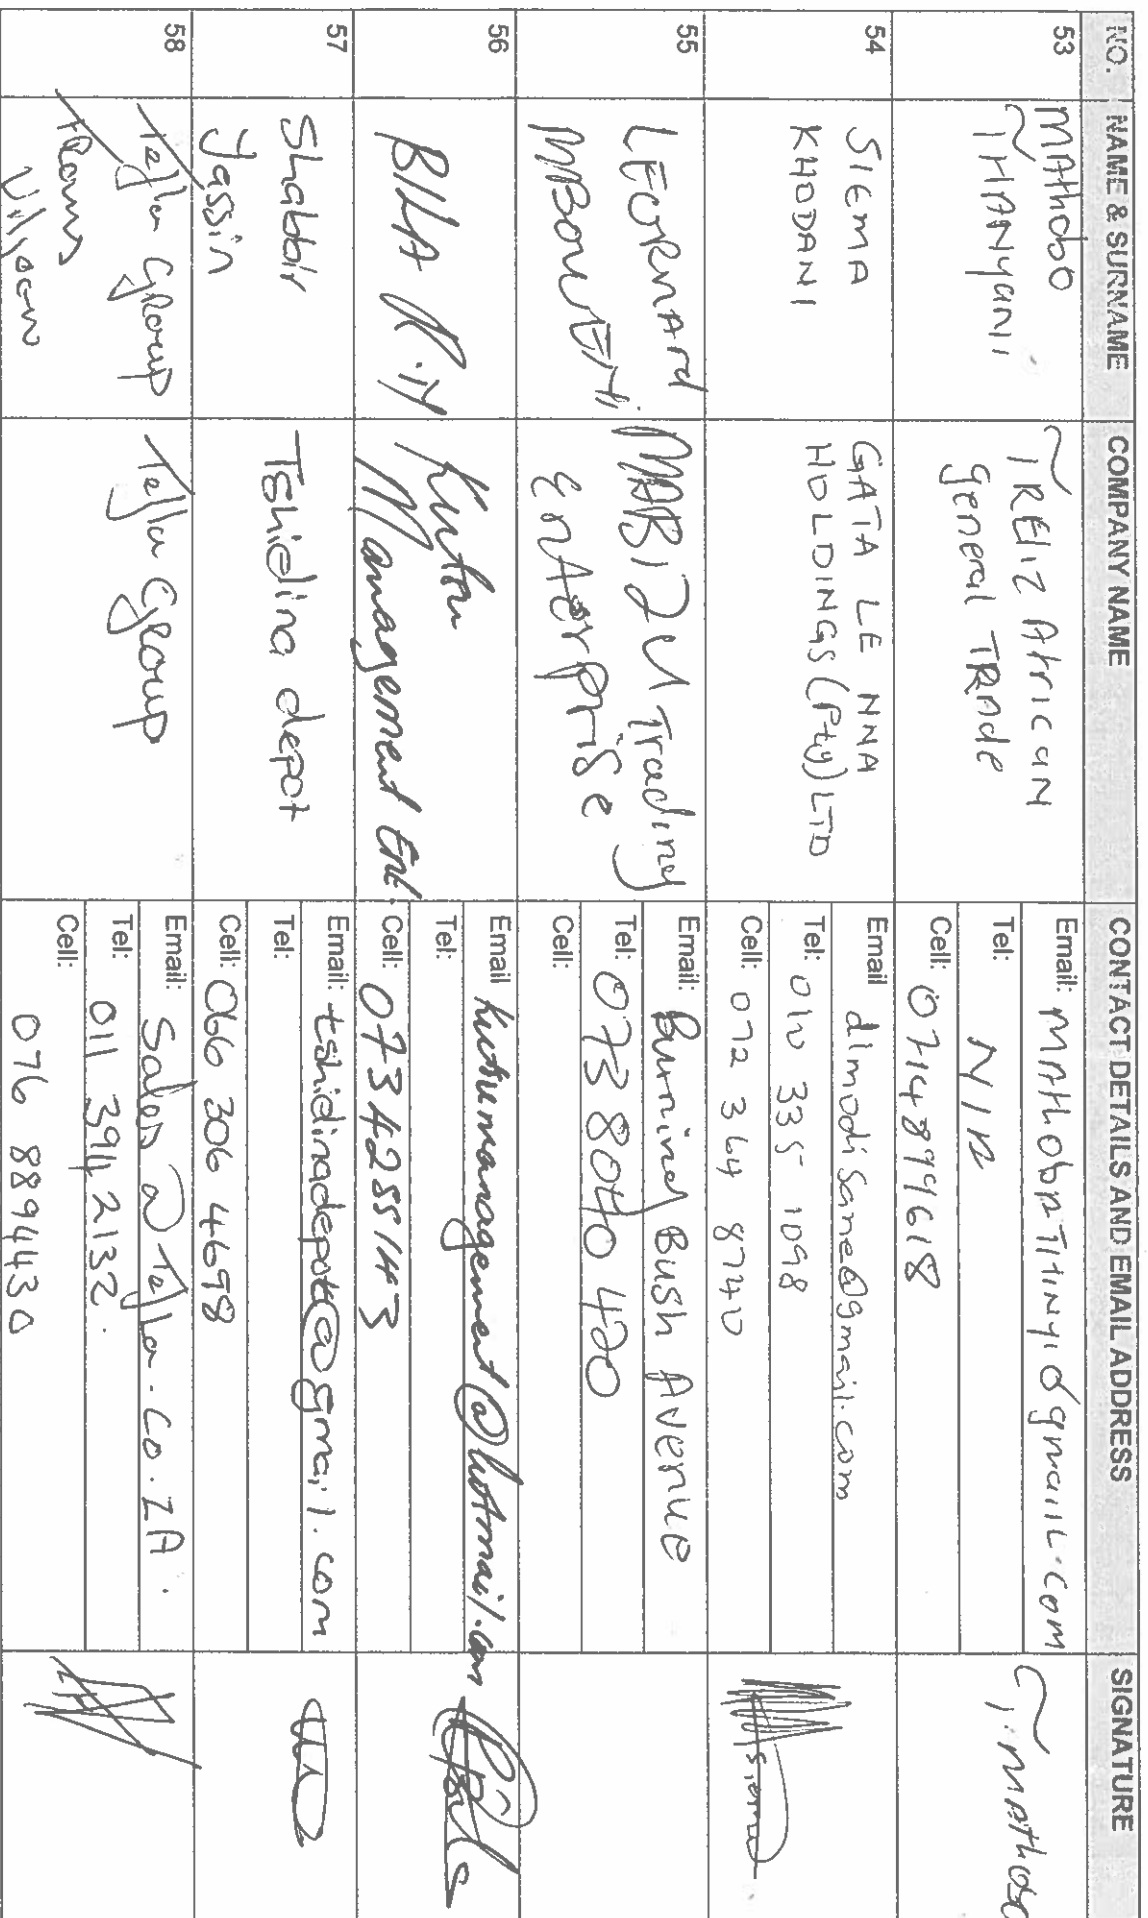 NO. NAME & SURNAME COMPANY NAME CONTACT DETAILS AND EMAIL ADDRESS SIGNATURE
53
MAthobo
THANyANI
TREliz AfricaN
general TRAde
Email:
Tel: N/A
Cell: 0714899618
T. MAthobo
54
SIEMA
KHODANI
GATA LE NNA
HOLDINGS (Pty) LTD
Email dimodisane@gmail.com
Tel: 010 335 1098
Cell: 072 364 8740
Siema
55
LEORNArd
MABIZU Trading
EntErprise
Email: Burning Bush Avenue
Tel: 073 8040 420
Cell:
56
BILA R.M
Kutsu
Management Ent.
Email kutsumanagement@hotmail.com
Tel:
Cell: 0734255143
57
Shabbir
Yassin
Tshidina depot
Email: tshidinadepot@gmail.com
Tel:
Cell: 066 306 4698
58
Tejla Group
Tejla Group
Email: Sales@Tejla.Co.ZA.
Tel: 011 394 2132.
Cell:
076 889 4430